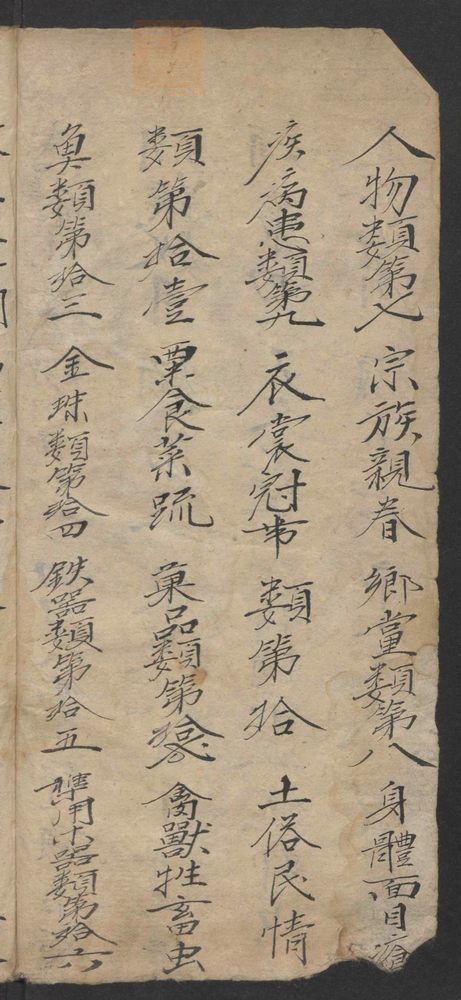 人物類第七 宗族親眷 鄉黨類第八 身體面目瘡
疾病患類第九 衣裳冠市 類第拾 土俗民情
類第拾壹 粟食菜疏 菓品類第拾 禽獸牲畜虫
魚類第拾三 金珠類第拾四 鉄器類第拾五 用器類第拾六